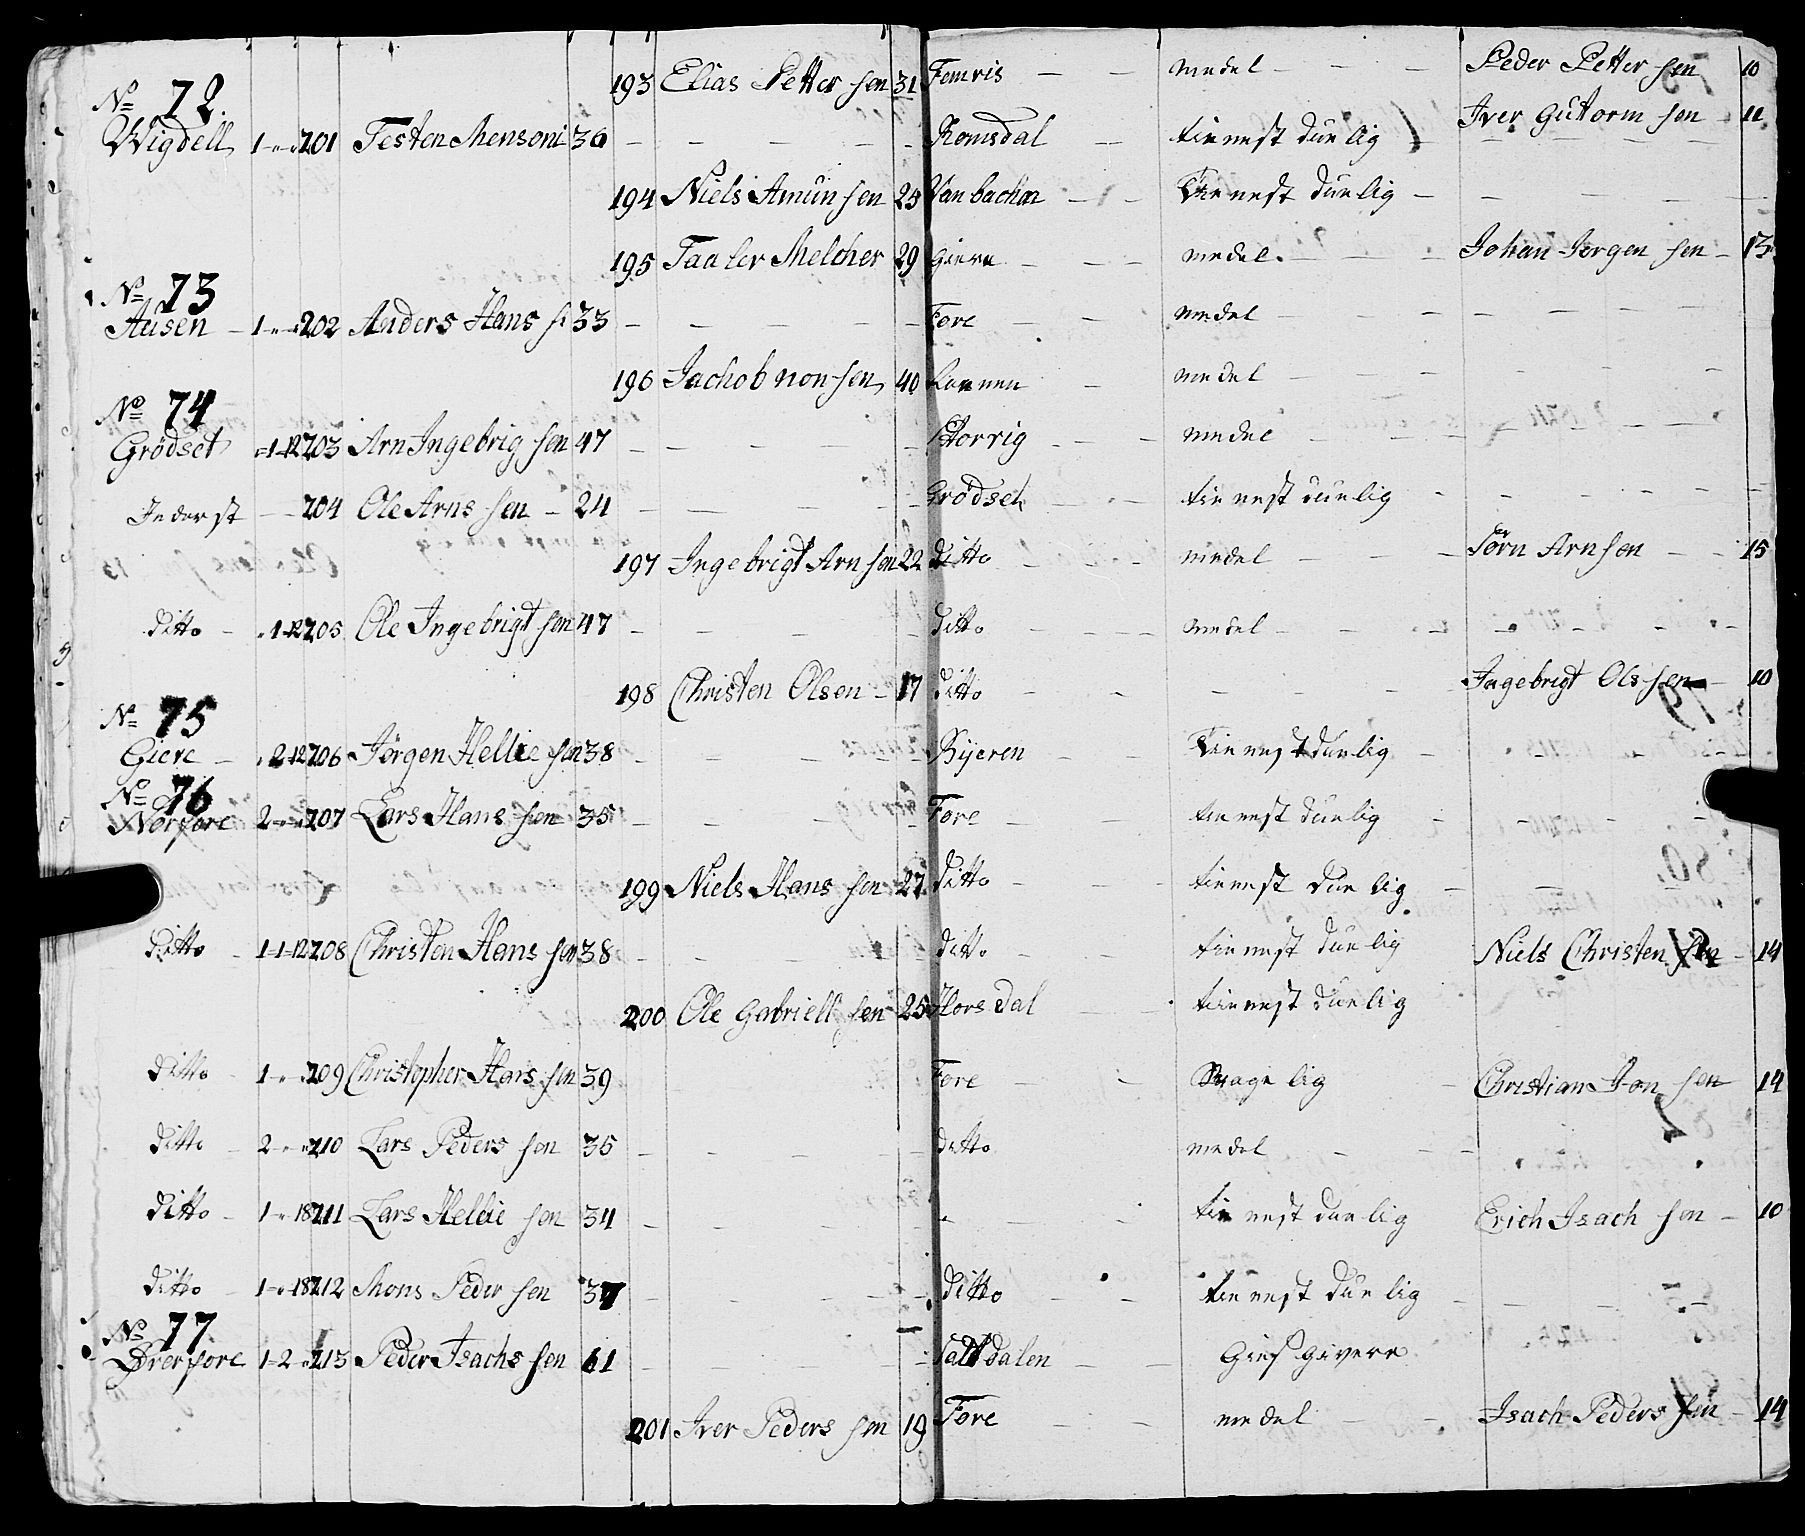 193 Elias Petter sen 31 Femris - - medel - - - Peder Petter sen 10
No 72.
Iver Gutorm sen 11
Wigdell 1 - " - 201 Testen Monsoni 30 - - - - Romsdal - - tienest durlig - - - -
194 Niels Amunsen 25 - - Tienest durlig - - - -
195 Taaler Melcher 29 Giere - - - medel. - - - Johan Jørgen sen - 13
No 73
Ausen - 1 - " - 202 Anders Hans s 33 - - - - Fore - - medel - - - - - -
196 Jachob non sen 40 - medel - - - - - -
No 74
Grødset 1 - 12 203 Arn Ingebrig sen 47 - - - - Storrig - - - medel - - - - - -
Inderst - - 204 Ole Arns sen - 24 - - - - Grødset - - tienest durlig - - - - -
197 Ingebrigt Arn sen 22 Ditto - - medel - - - Sørn Arnsen - - 15
Ditto - 1 - 12 205 Ole Ingebrigt sen 47 - - - - Ditto - - - medel - - - - - -
198 Christen Olsen - 17 Ditto - - - - - Ingebrigt Olssen - 10
No 75
Giere - 2 - 12 206 Jørgen Hellie sen 38 - - - - Bijeren - - Tienest durlig - - - -
No 76
Norfore 2 - " - 207 Lars Hans sen 35 - - - - Fore - - tienest durlig - - - -
199 Niels Hans sen 27 Ditto - - - tienest durlig - - -
Ditto - 1 - 1 - 12 208 Christen Hans sen 38 - - - Ditto - - - tienest durlig Niels Christen sen - 14
200 Ole Gabriell sen 25 Horsdal - - tienest durlig
Ditto - 1 - " - 209 Christopher Hans sen 39 Fore - - Svagelig - Christian Jon sen 14
Ditto - 2 - " - 210 Lars Peders sen 35 - - - - Ditto medel - - -
Ditto - 1 - " - 18 211 Lars Hellie sen 34 - - - - - - - tienest durlig Erich Isach sen - 10
Ditto - 1 - " - 18 212 Mons Peder sen 37 - - - - Ditto - - tienest durlig - - - - -
No 77
Ørerfore 1 - 2 - " 213 Peder Isachs sen 61 - - - - Saltdalen - - Giestgivere
201 Iver Peders sen 19 Fore - - medel - - Isach Peders sen - 14